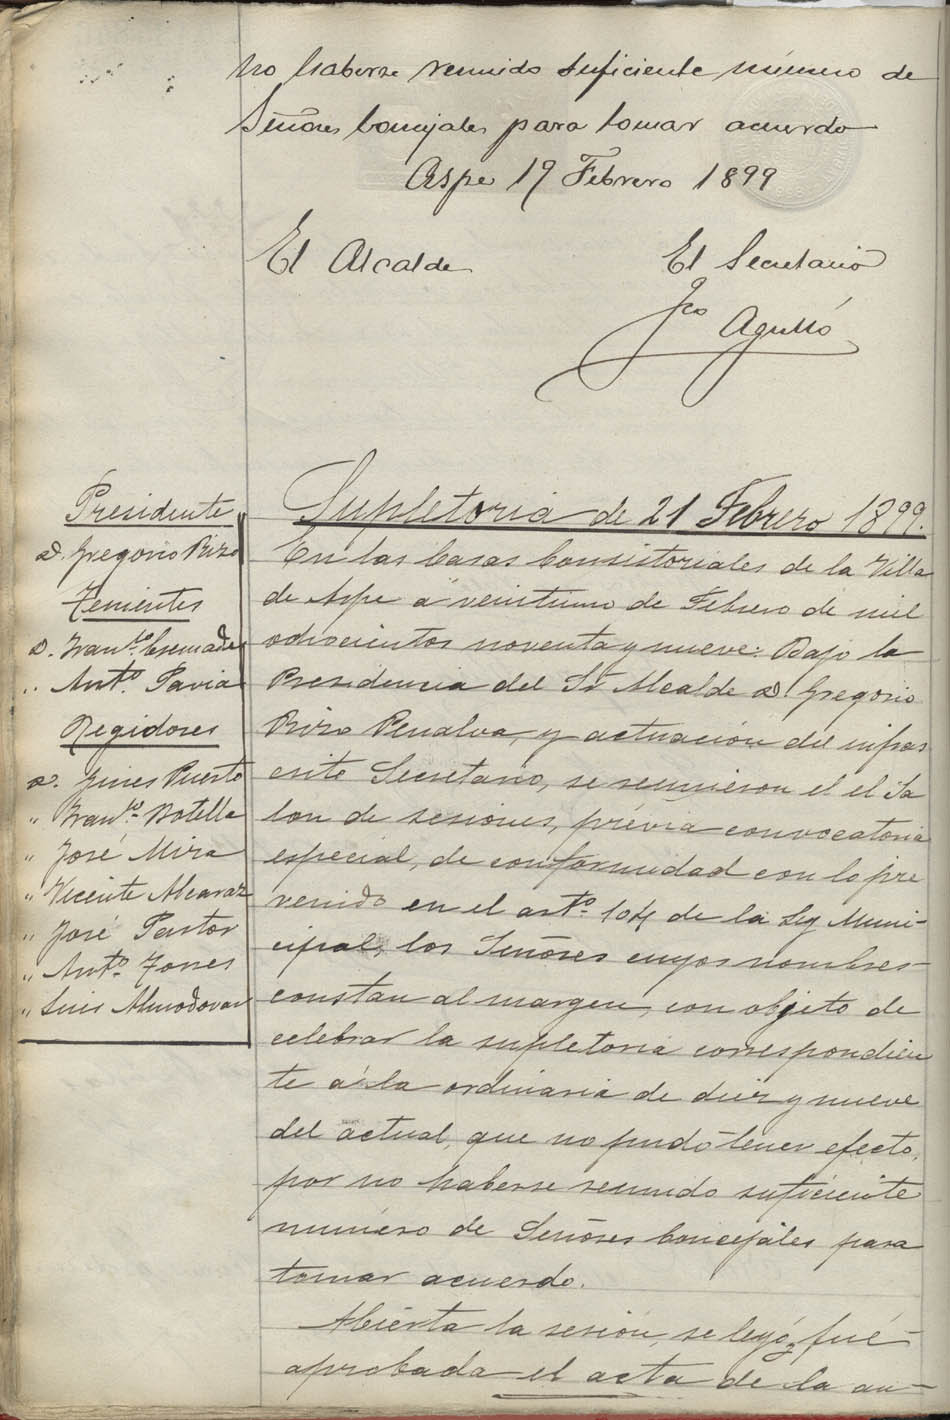 no haberse reunido suficiente número de
Señores Concejales para tomar acuerdo
Aspe 19 Febrero 1899
El Alcalde
El Secretario
Fco Agulló
Supletoria de 21 Febrero 1899.
Presidente
D. Gregorio Rizo
Tenientes
D. Franco. Cremades
" Anto. Pavia
Regidores
D. Gines Puerto
" Franco. Botella
" José Mira
" Vicente Alcaraz
" José Pastor
" Anto. Torres
" Luis Almodovar
En las Casas Consistoriales de la Villa
de Aspe á veintiuno de Febrero de mil
ochocientos noventa y nueve: Bajo la
Presidencia del Sr Alcalde D. Gregorio
Rizo Penalva, y actuación del infras
crito Secretario, se reunieron el el Sa
lon de sesiones, prévia convocatoria
especial, de conformidad con lo pre
venido en el arto. 104 de la Ley Muni-
cipal, los Señores cuyos nombres
constan al margen, con objeto de
celebrar la supletoria correspondien
te á la ordinaria de diez y nueve
del actual, que no pudo tener efecto,
por no haberse reunido suficiente
número de Señores Concejales para
tomar acuerdo.
Abierta la sesión, se leyó y fué
aprobada el acta de la an-